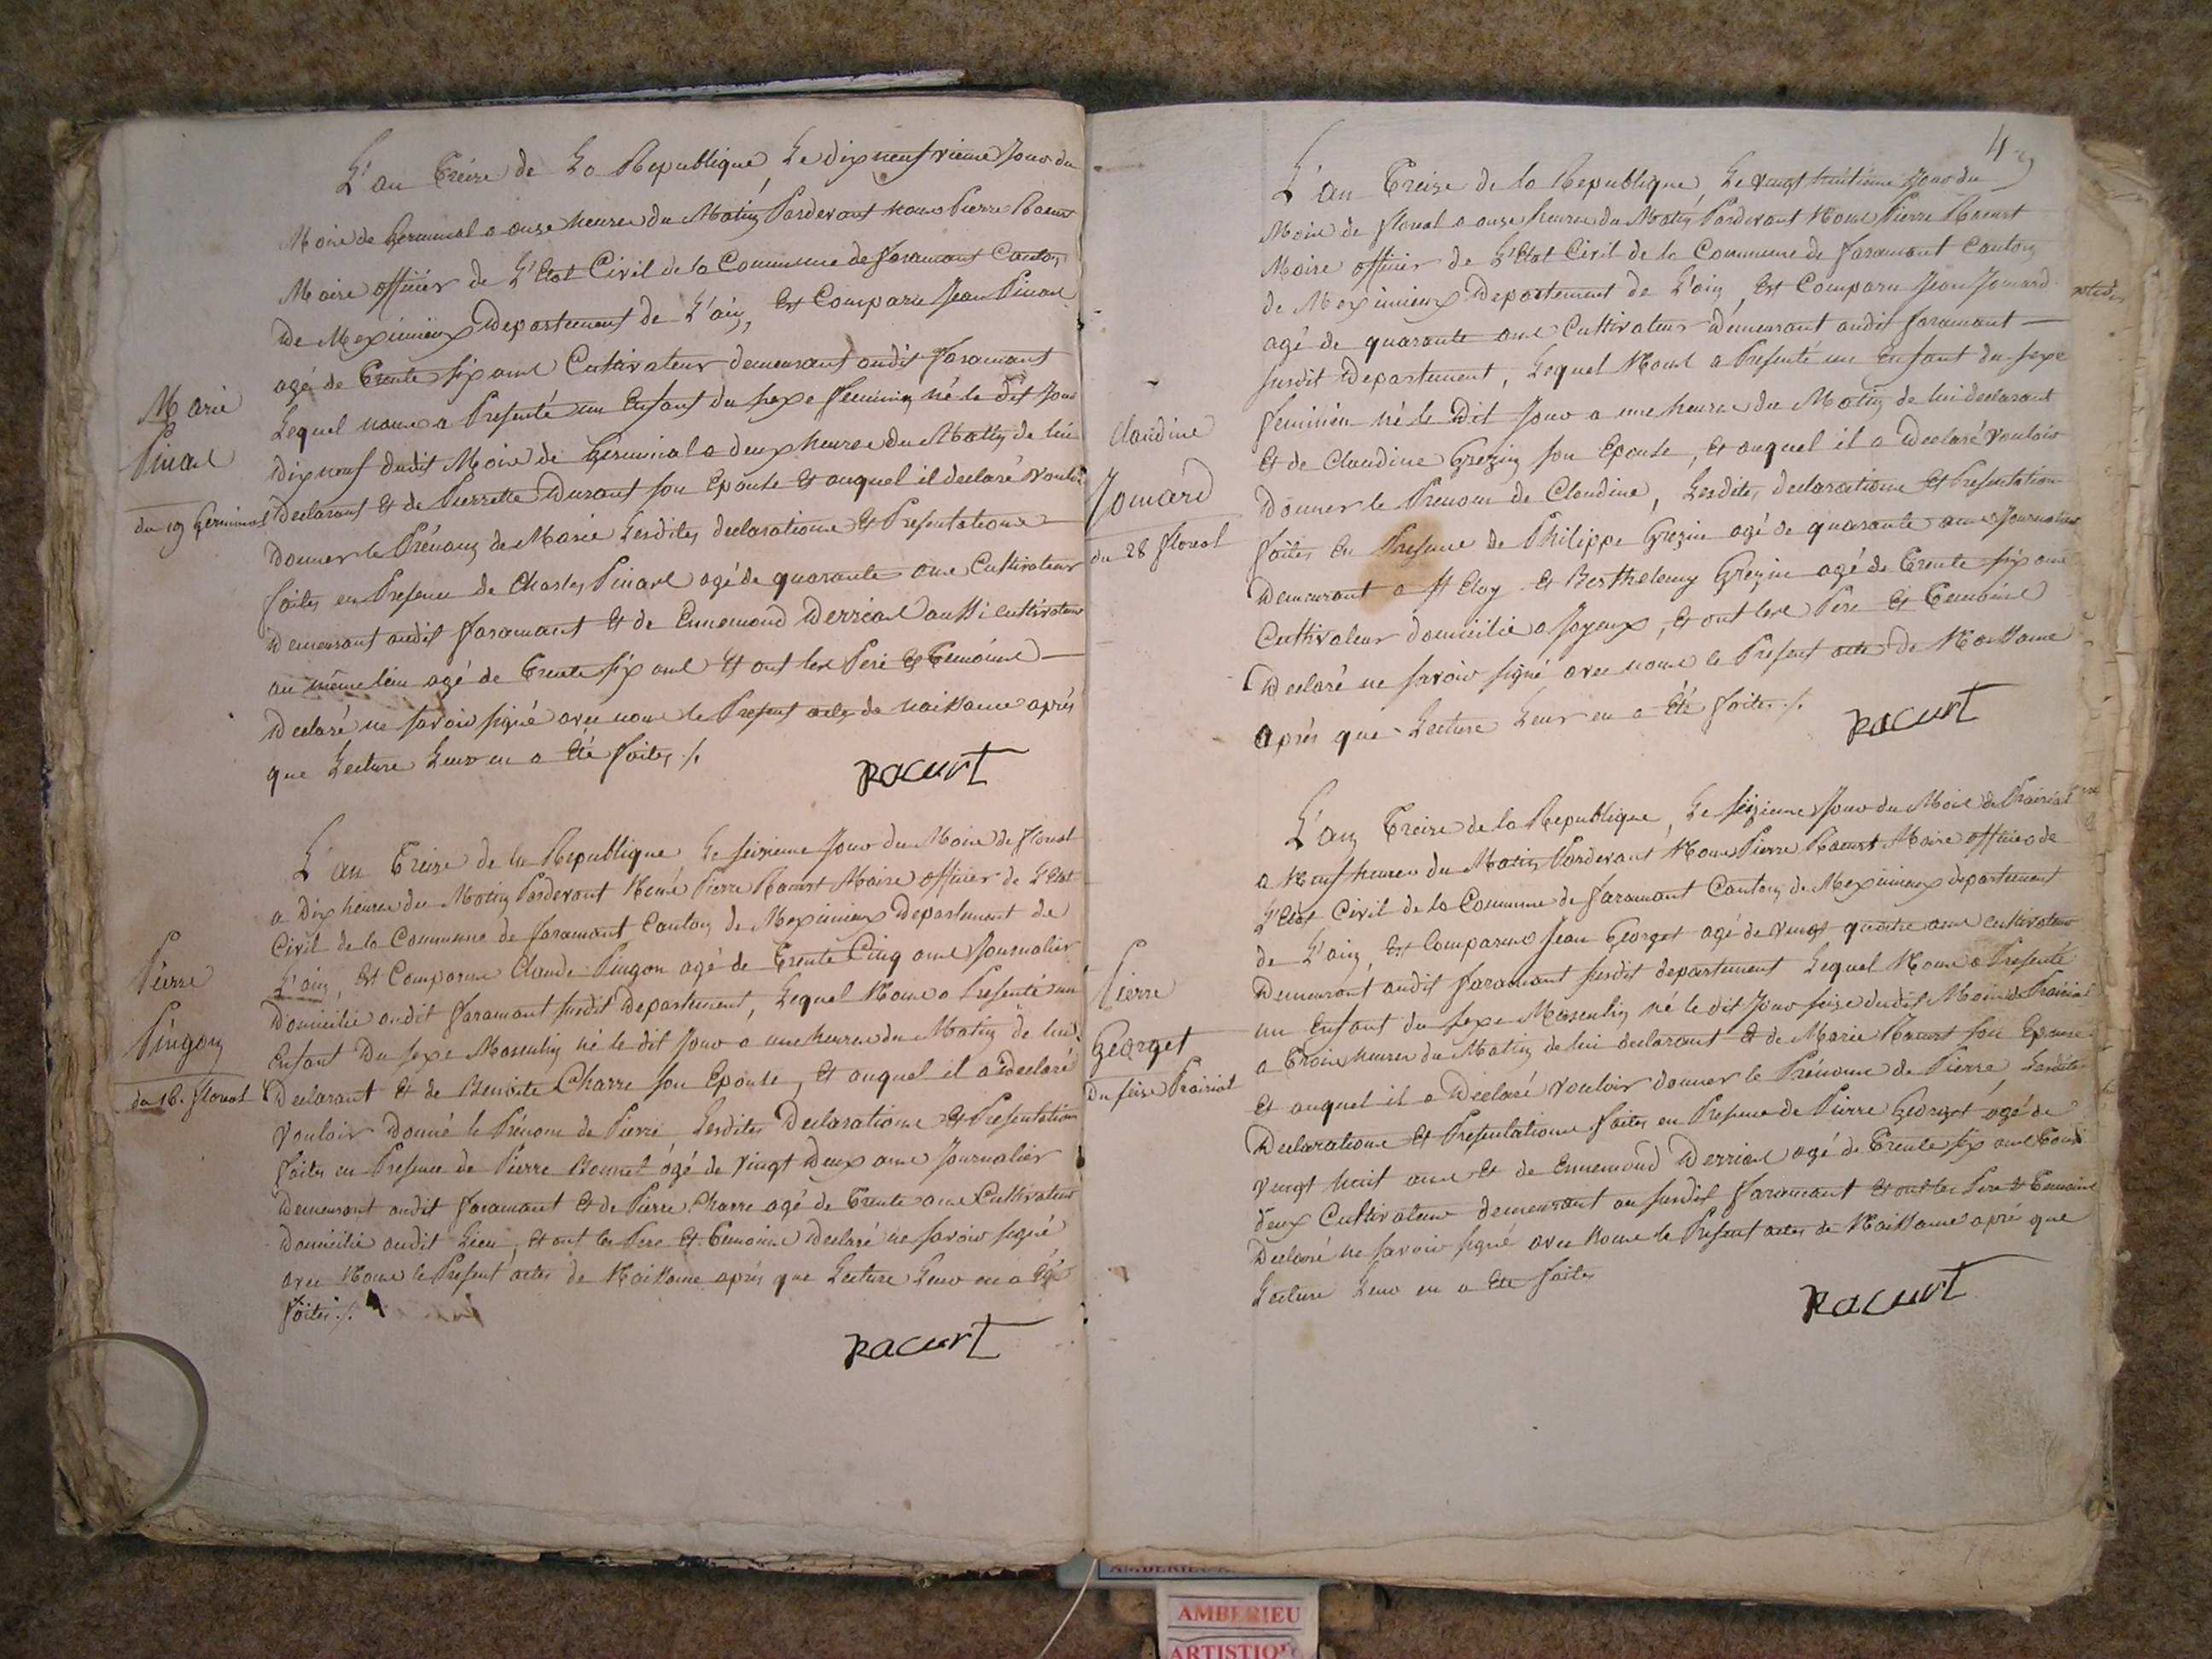 L'an treize de La Republique, Le dix neufvieme Jour du
Mois de Germinal a onse heures du Matin Pardevant nous Pierre Racurt
Maire officier de L'Etat Civil de la Commune de faramant Canton
De Meximieux Departement de L'ain, Est Comparu Jean Pinard
agé de trente six ans Cultivateur demeurant audit faramant
Lequel nous a Presenté un Enfant du sexe feminin né le dit Jour
Dix neuf dudit Mois de Germinal a deux heures du Matin de lui
Declarant et de Pierrette Durant son Epouse et auquel il declaré vouloir
Donner le Prénom de Marie Lesdites declarations et Presentations
faites en Presence de Charles Pinard agé de quarante ans Cultivateur
Demeurant audit faramant et de Ennemond Derriad aussi cultivateur
au même lieu agé de trente six ans et ont les Pere et temoins
Declaré ne savoir signé avec nous le Present actes de naissance après
que Lecture Leur en a Eté faites ./.
Racurt
Marie
Pinard
du 19 Germinal
L'an treize de la Republique Le seizieme Jour du Mois de floreal
a Dix heures du Matin Pardevant Nous Pierre Racurt Maire officier de L'Etat
Civil de la Commune de faramant Canton de Meximieux Departement de
L'ain, Est Comparu Claude Pingon agé de trente Cinq ans Journalier
Domicilié audit faramant susdit Departement, Lequel Nous a Presenté un
Enfant Du sexe Masculin né le dit Jour a une heures du Matin de lui
Declarant et de Benoite Charre son Epouse, et auquel il a Declaré
Vouloir Donné le Prénom de Pierre Lesdites Declarations et Presentations
faites en Presence de Pierre Bonnet agé de vingt Deux ans Journalier
Demeurant audit faramant et de Pierre Charre agé de trente ans Cultivateur
Domicilié audit Lieu, et ont les Pere et temoins Declaré ne savoir signé
avec Nous le Present actes de Naissance après que Lecture Leur en a Eté
faites ./.
Racurt
Pierre
Pingon
du 16. floreal
4
L'an treize de la Republique, Le vingt huitieme Jour du
Mois de floreal a onse heures du Matin Pardevant Nous Pierre Racurt
Maire officier de L'Etat Civil de la Commune de faramant Canton
de Meximieux Departement de L'ain, Est Comparu Jean Jomard
agé de quarante ans Cultivateur Demeurant audit faramant
susdit Departement, Lequel Nous a Presenté un Enfant du sexe
feminin né le Dit Jour a une heures du Matin de lui declarant
et de Claudine Grezin son Epouse, et auquel il a Declaré vouloir
Donner le Prenom de Claudine, Lesdites declarations et Presentations
faites en Presence de Philippe Grezin agé de quarante ans Journalier
Demeurant a St Eloy et Berthelemy Grezin agé de trente six ans
Cultivateur domicilié a Joyeux, et ont les Pere et temoins
Declaré ne savoir signé avec nous le Present acte de Naissance
après que Lecture Leur en a Eté faites ./.
Racurt
Claudine
Jomard
du 28 floreal
L'an treize de la Republique, Le seizieme Jour du Mois de Prairial
a Neuf heures du Matin Pardevant Nous Pierre Racurt Maire officier de
L'Etat Civil de la Commune de faramant Canton de Meximieux departement
de L'ain, Est Comparu Jean Georget agé de vingt quatre ans cultivateur
Demeurant audit faramant susdit departement Lequel Nous a Presenté
un Enfant du sexe Masculin né le dit Jour seize dudit Mois de Prairial
a trois heures du Matin de lui declarant et de Marie Racurt son Epouse
et auquel il a Declaré vouloir donner le Prénom de Pierre, Lesdites
Declarations et Presentations faites en Presence de Pierre Georget agé de
vingt huit ans et de Ennemond Derriad agé de trente six ans tous
deux Cultivateurs demeurant au susdit faramant et ont les Pere et temoins
Declaré ne savoir signé avec Nous le Present actes de Naissance après que
Lecture Leur en a Eté faites
Racurt
Pierre
Georget
Du seise Prairial
AMBERIEU
ARTISTIQU